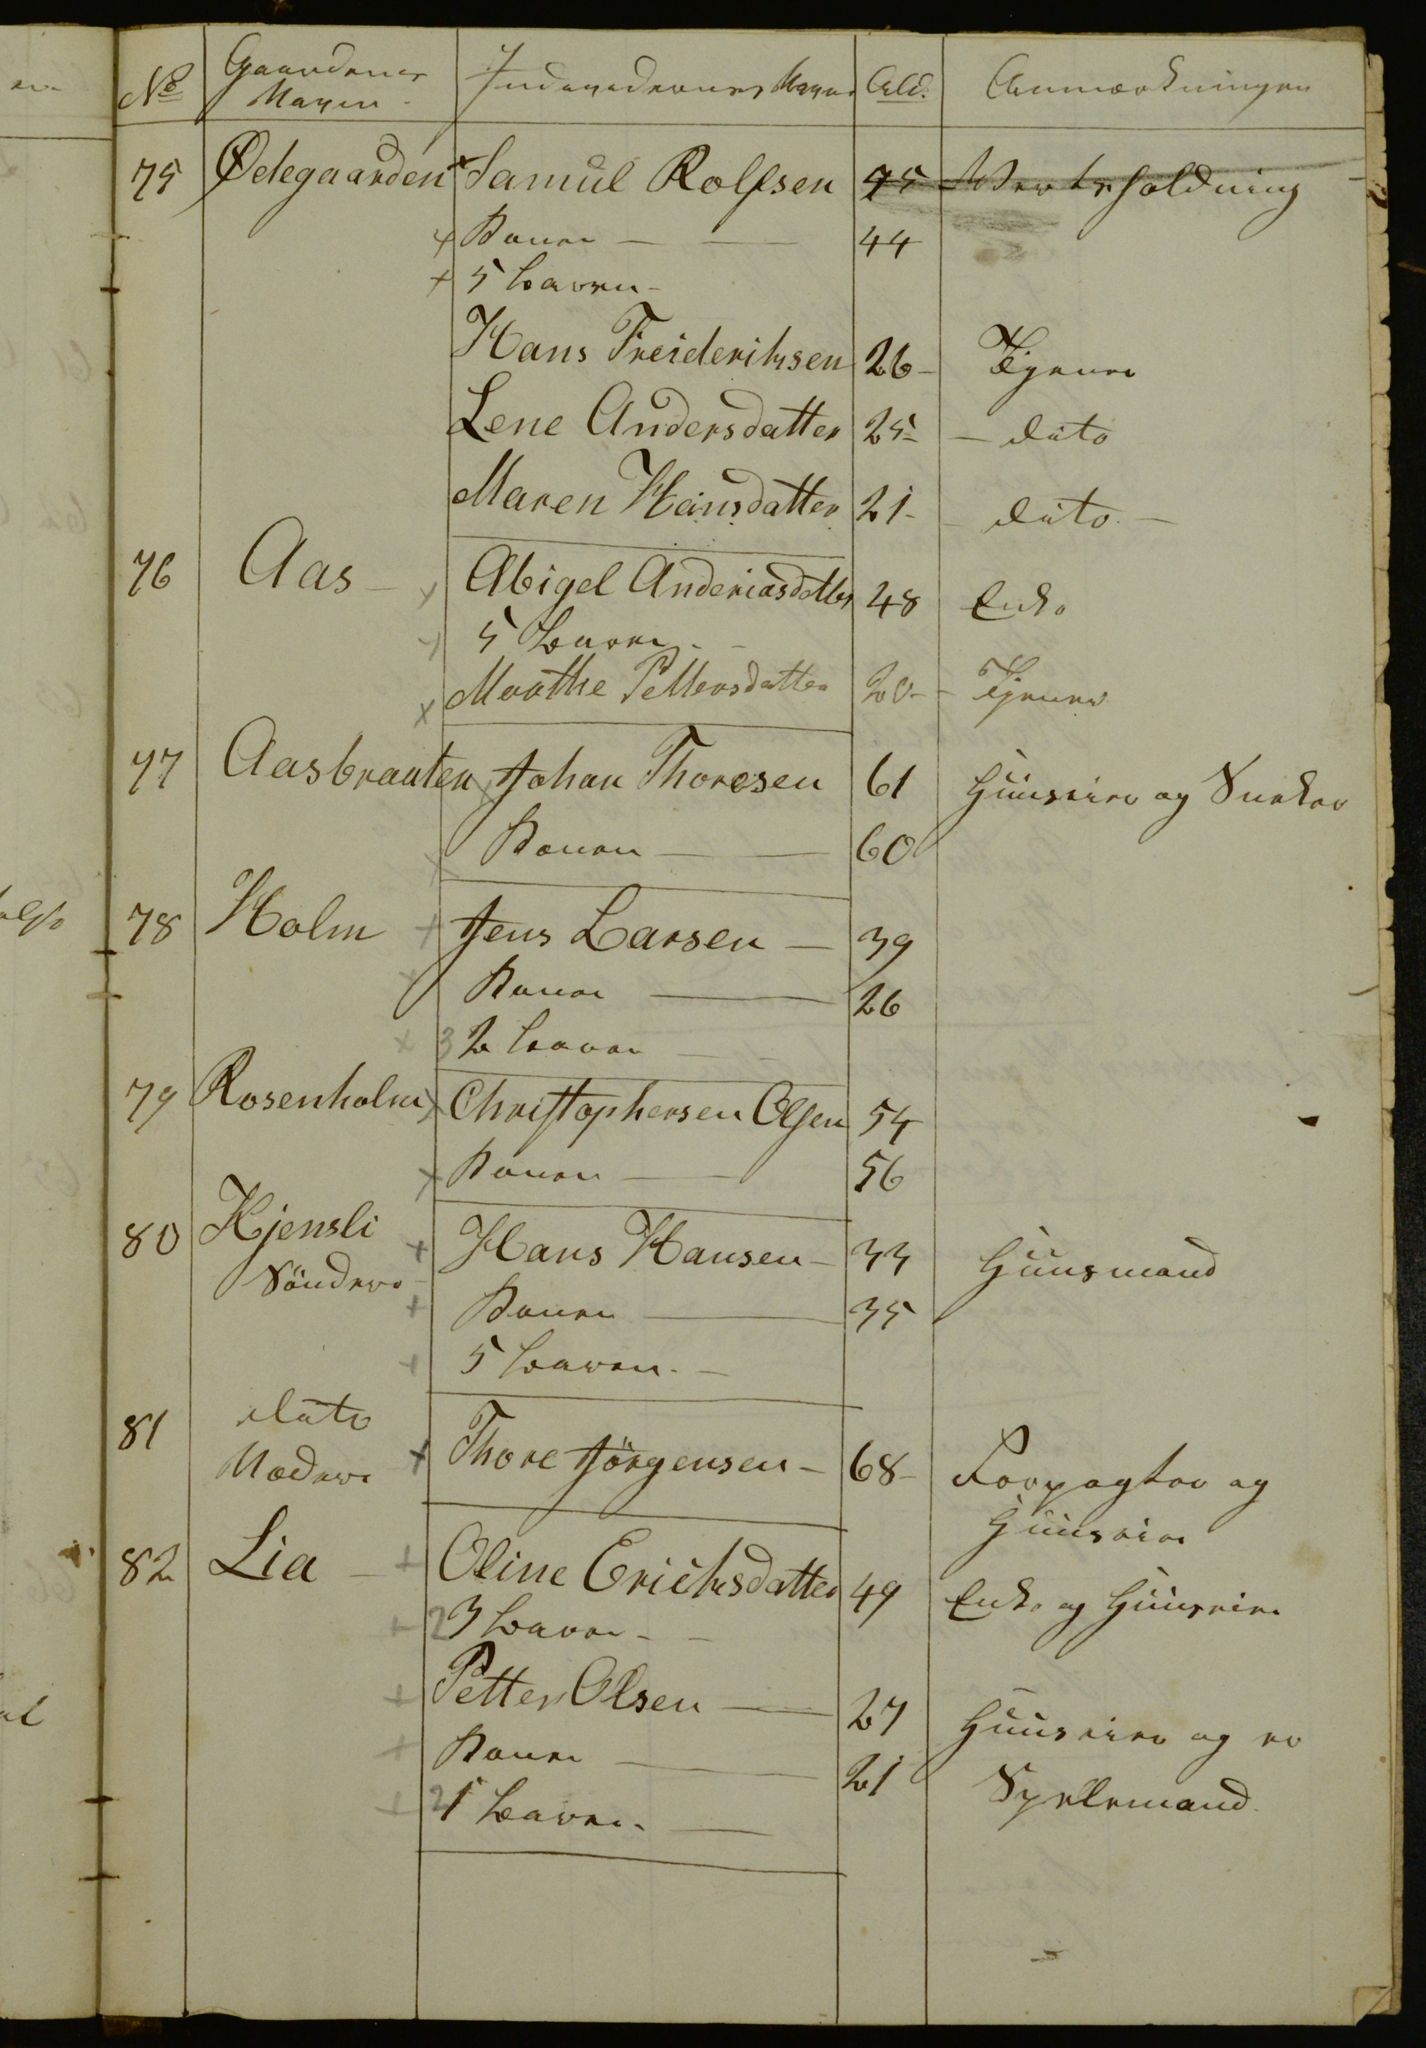 No Gaardenes Navne. Individernes Navne Ald. Anmærkninger
75 Ødegaarden Samuel Rolfsen 45 Værtsholdning
Konen 44
5 Børn
Hans Freideriksen 26 Tjener
Lene Andersdatter 25 dito
Maren Hansdatter 21 dito
76 Aas Abigel Anderiasdatter 48 Enke
5 Børn
Marthe Pettersdatter 20 Tjener
77 Aasbraaten Johan Thoresen 61 Huuseier og Sneker
Konen 60
78 Holm Jens Larsen 39
Konen 26
3 2 Børn
79 Rosenholm Christophersen Olsen 54
Konen 56
80 Kjensli Søndere Hans Hansen 33 Huusmand
Konen 35
5 Børn
81 dito Nedere Thore Jörgensen 68 Forpagter og
Huuseier
82 Lia Oline Eriksdatter 49 Enke og Huuseier
2 3 Børn
Petter Olsen 27 Huuseier og er
Konen 21 Spellemand
2 1 Børn